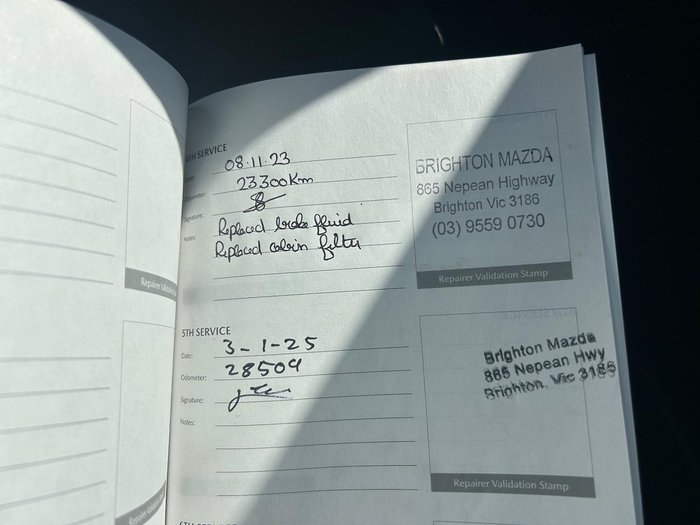 4TH SERVICE
08.11.23
Odometer: 23300Km
Signature:
Notes: Replaced brake fluid
Replaced cabin filter
BRIGHTON MAZDA
865 Nepean Highway
Brighton Vic 3186
(03) 9559 0730
Repairer Validation Stamp
5TH SERVICE
Date: 3-1-25
Odometer: 28509
Signature:
Notes:
Brighton Mazda
865 Nepean Hwy
Brighton, Vic 3186
Repairer Validation Stamp
6TH SERVICE
Repairer Validation
Repairer Validation